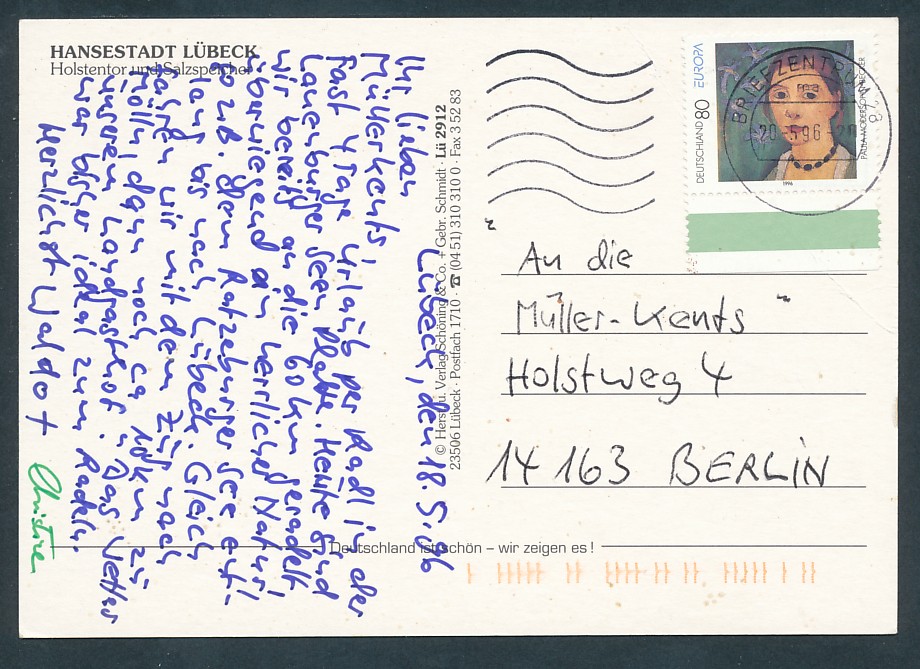 HANSESTADT LÜBECK
Holstentor und Salzspeicher
Lübeck, den 18.5.96
Ihr lieben
Müllerkents!
Fast 4 Tage Urlaub per Radl in der
Lauenburger Seenplatte. Heute sind
wir bereits an die 60 km geradelt!
überwiegend an herrlicher Natur!
So z.B. dem Ratzeburger See ent-
lang bis nach Lübeck. Gleich
fahren wir mit dem Zug nach
Mölln, dann noch ca 10 km zu
unserem Landgasthof. Das Wetter
war bisher ideal zum Radeln.
Herzlichst Waldo +
Christine
© Herst. u. Verlag Schöning & Co. + Gebr. Schmidt · Lü 2912
23506 Lübeck · Postfach 1710 · ☎ (04 51) 310 310 0 · Fax 3 52 83
DEUTSCHLAND 80 EUROPA
PAULA MODERSOHN-BECKER
1996
BRIEFZENTRUM
-20.-5.96-20
"An die
Müller-Kents"
Holstweg 4
14163 BERLIN
Deutschland ist schön – wir zeigen es !